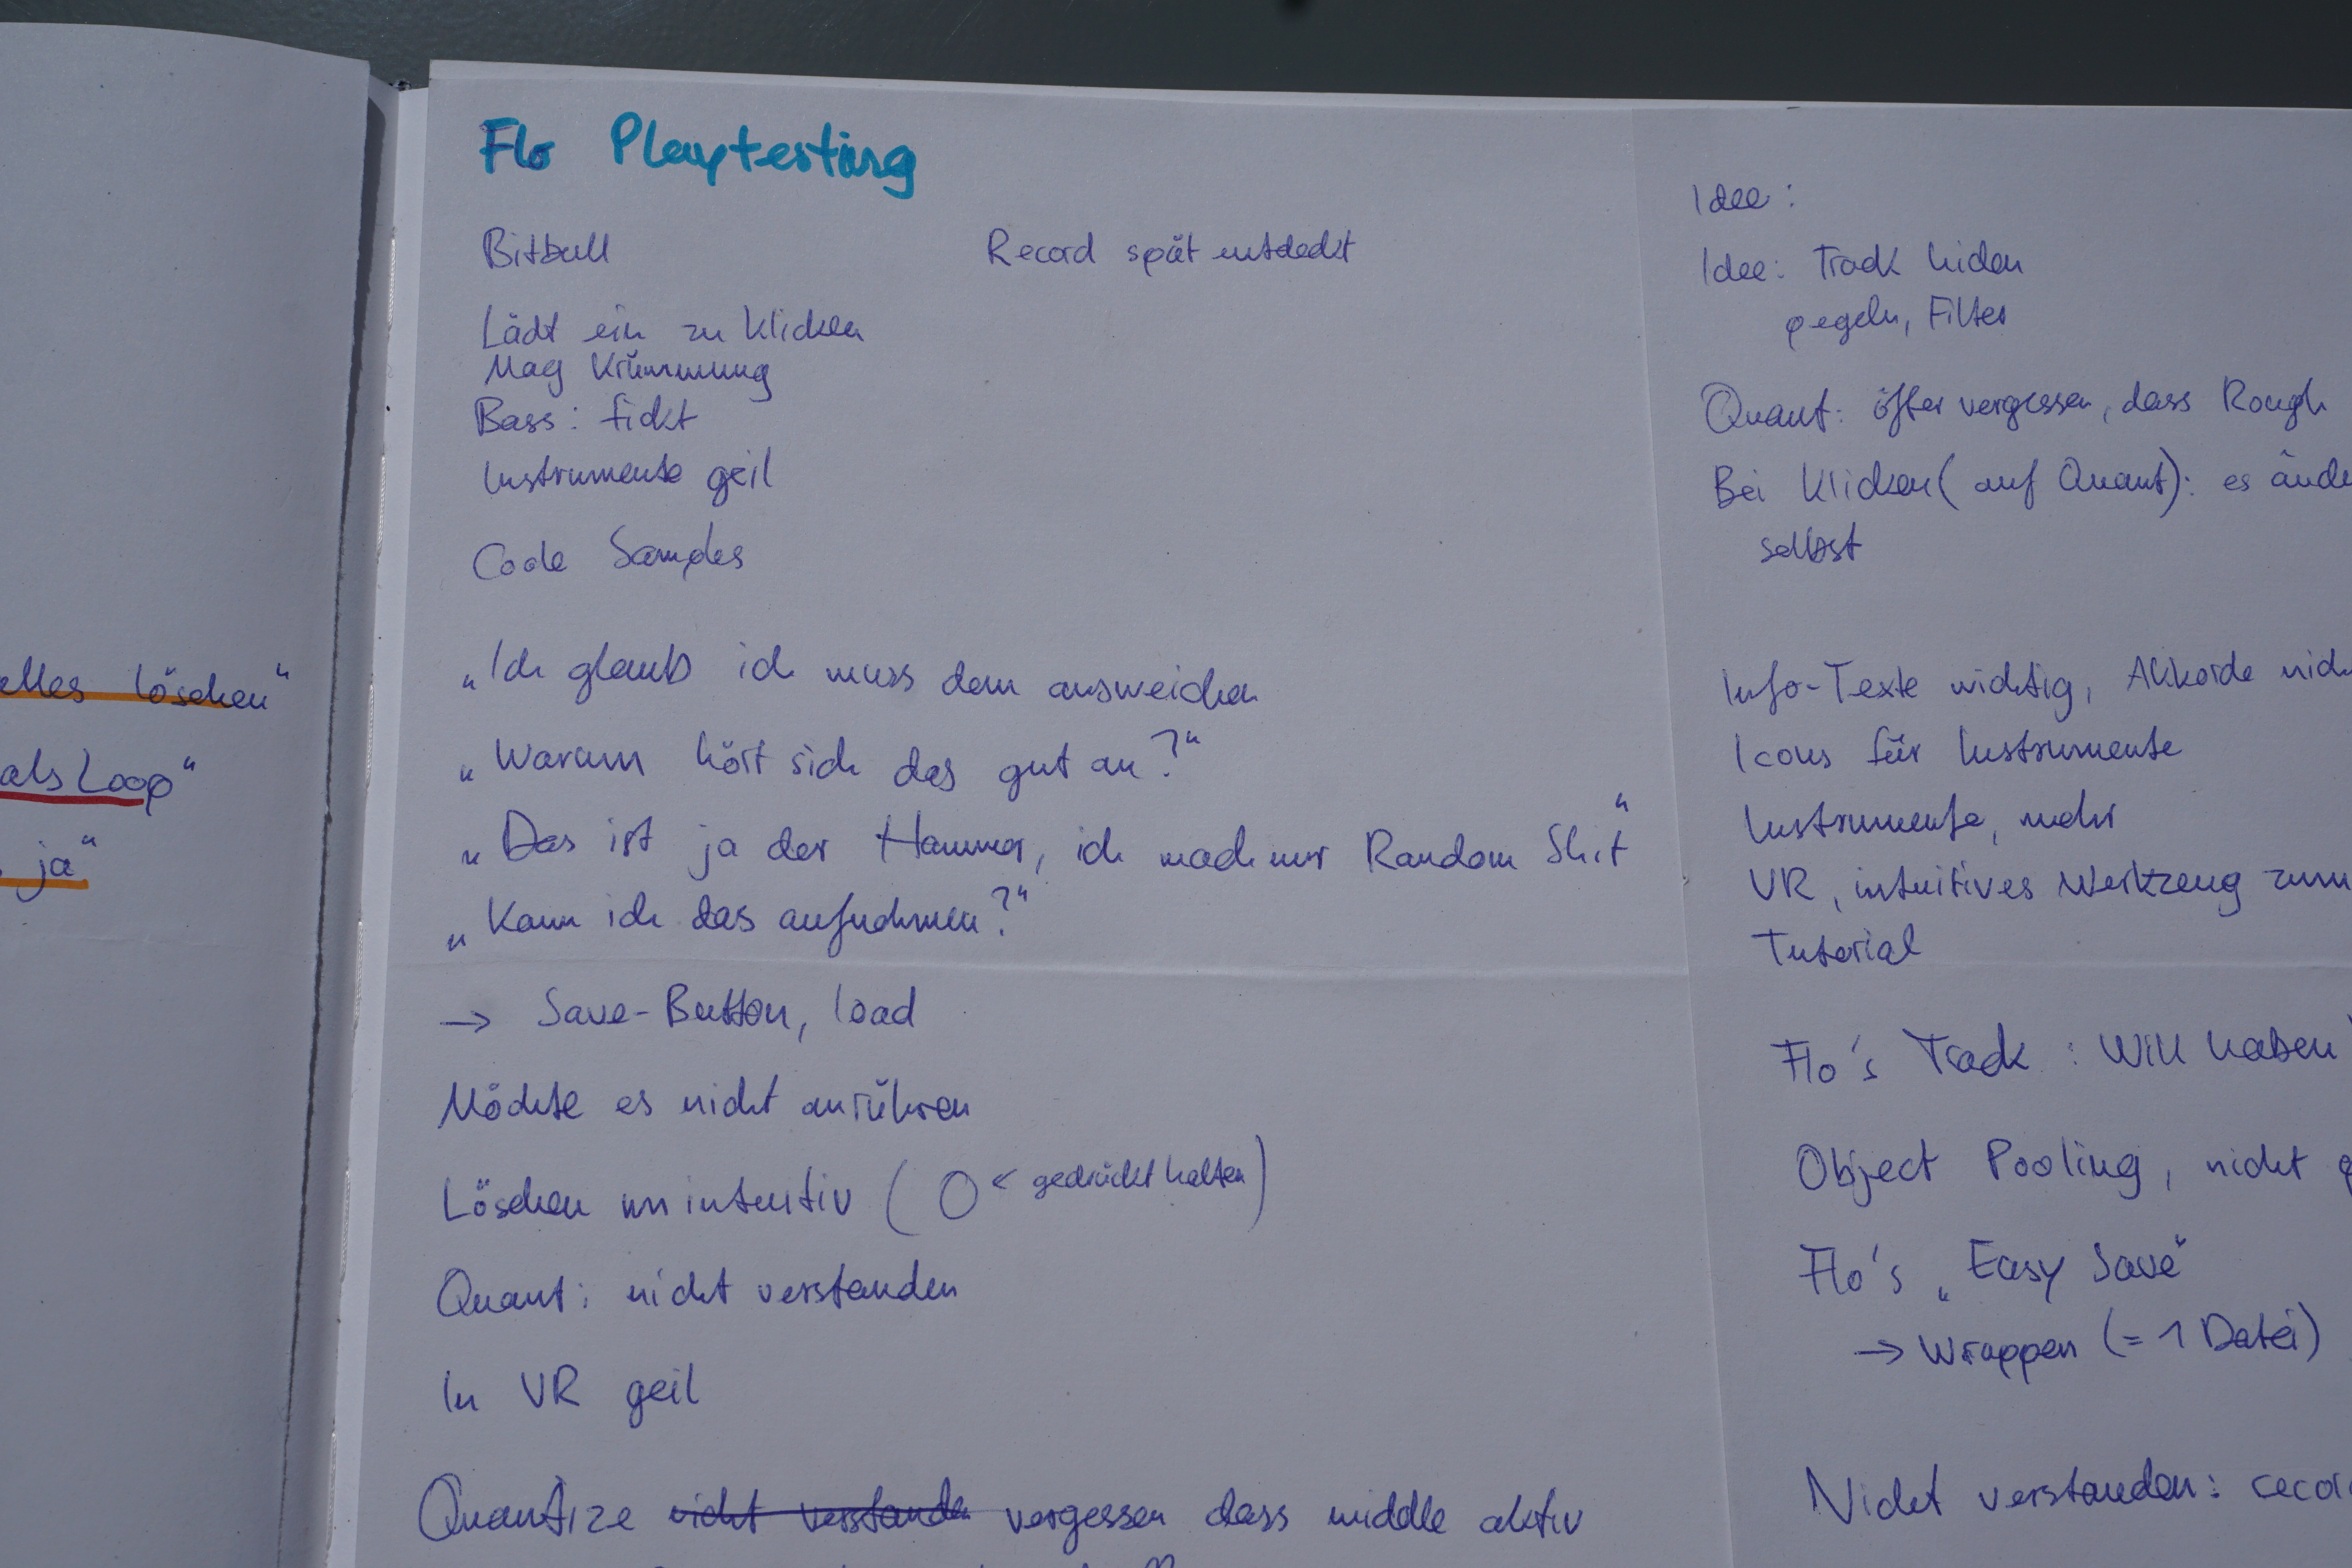 alles löschen“
als Loop“
ja“
Flo Playtesting
Bitbull
Record spät entdeckt
Lädt ein zu klicken
Mag Krümmung
Bass: fickt
Instrumente geil
Code Samples
„Ich glaub ich muss dem ausweichen
„Warum hört sich das gut an?“
„Das ist ja der Hammer, ich mach nur Random Shit“
„Kann ich das aufnehmen?“
→ Save-Button, load
Möchte es nicht anrühren
Löschen unintuitiv (O < gedrückt halten)
Quant: nicht verstanden
In VR geil
Quantize nicht verstanden vergessen dass middle aktiv
Idee:
Idee: Track hiden
pegeln, Filter
Quant: öfter vergessen, dass Rough
Bei Klicken (auf Quant): es ände
selbst
Info-Texte wichtig, Akkorde nich
Icons für Instrumente
Instrumente, mehr
VR, intuitives Werkzeug zum
Tutorial
Flo's Track: Will haben
Object Pooling, nicht
Flo's „Easy Save“
→ Wrappen (= 1 Datei)
Nicht verstanden: recor